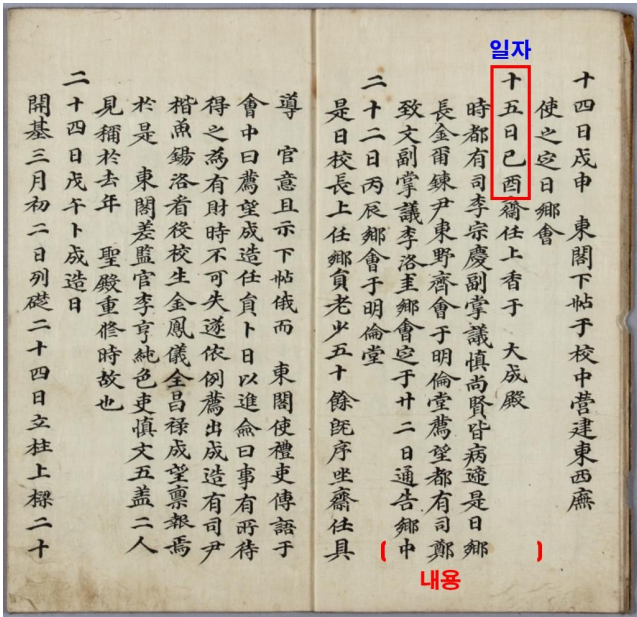 일자
十四日戊申 東閣下帖于校中營建東西廡
使之㝎日鄕會
十五日己酉齋任上香于 大成殿
時都有司李宗慶副掌議愼尙賢皆病遞是日鄕
長金爾鍊尹東野齊會于明倫堂薦望都有司鄭
致文副掌議李洛圭鄕會㝎于廿二日通告鄕中
二十二日丙辰鄕會于明倫堂
是日校長上任鄕員老少五十餘旣序坐齋任具
導 官意且示下帖俄而 東閣使禮吏傳語于
會中曰薦望成造任員卜日以進僉曰事有所待
得之爲有財時不可失遂依例薦出成造有司尹
楷魚錫洛看役校生金鳳儀全昌祿成望稟報焉
於是 東閣差監官李亨純色吏愼文五盖二人
見稱於去年 聖殿重修時故也
二十四日戊午卜成造日
開基三月初二日列礎二十四日立柱上樑二十
내용